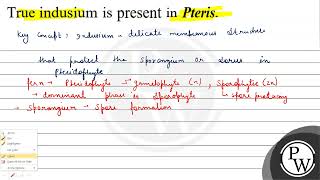 True indusium is present in Pteris.
Key Concept: Indusium = delicate membranous structure
that protect the sporangium or sorus in
Pteridophyte
fern → Pteridophyte → gametophyte (n), Sporophyte (2n)
→ dominant phase is sporophyte → spore producing
→ Sporangium → Spore formation
PW